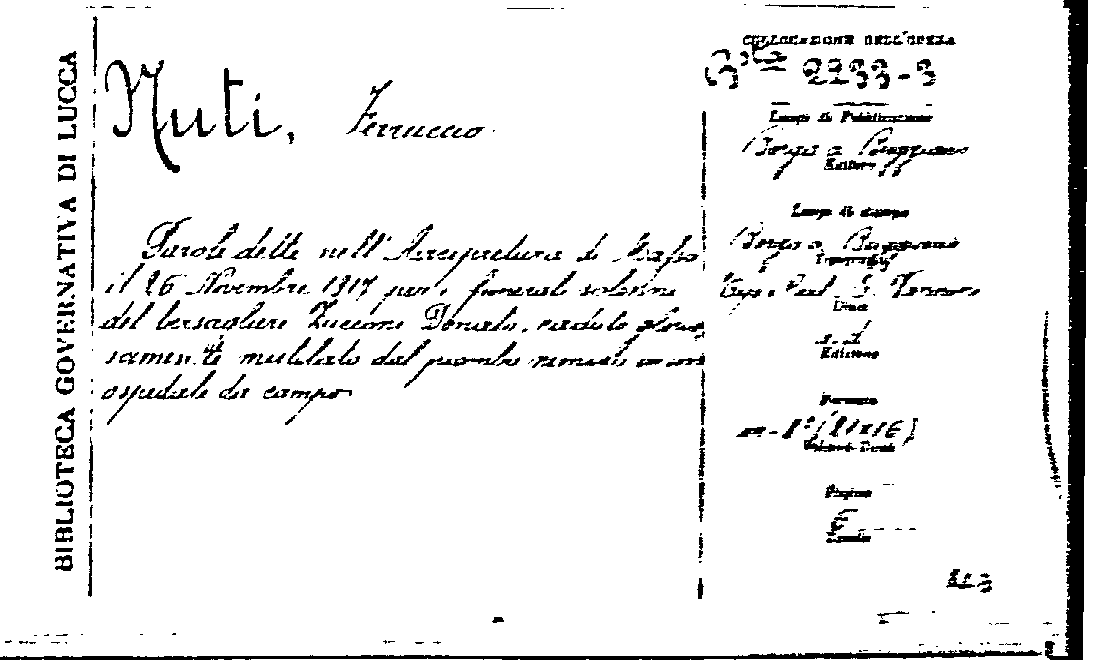 BIBLIOTECA GOVERNATIVA DI LUCCA
Nuti, Ferruccio
Parole dette nell'Arcipretura di Massa
il 26 Novembre 1917 per i funerali solenni
del bersagliere Zuccone Donato, caduto glorio,
samente mutilato dal piombo nemico in un
ospedale da campo
COLLOCAZIONE DELL'OPERA
Bta 2233-3
Luogo di Pubblicazione
Borgo a Buggiano
Editore
Luogo di stampa
Borgo a Buggiano
Tipografia
Tip. Vald. G. Vannini
Data
s.d.
Edizione
Formato
in-8°(21x15)
Volumi Tomi
Pagine
6
Tavole